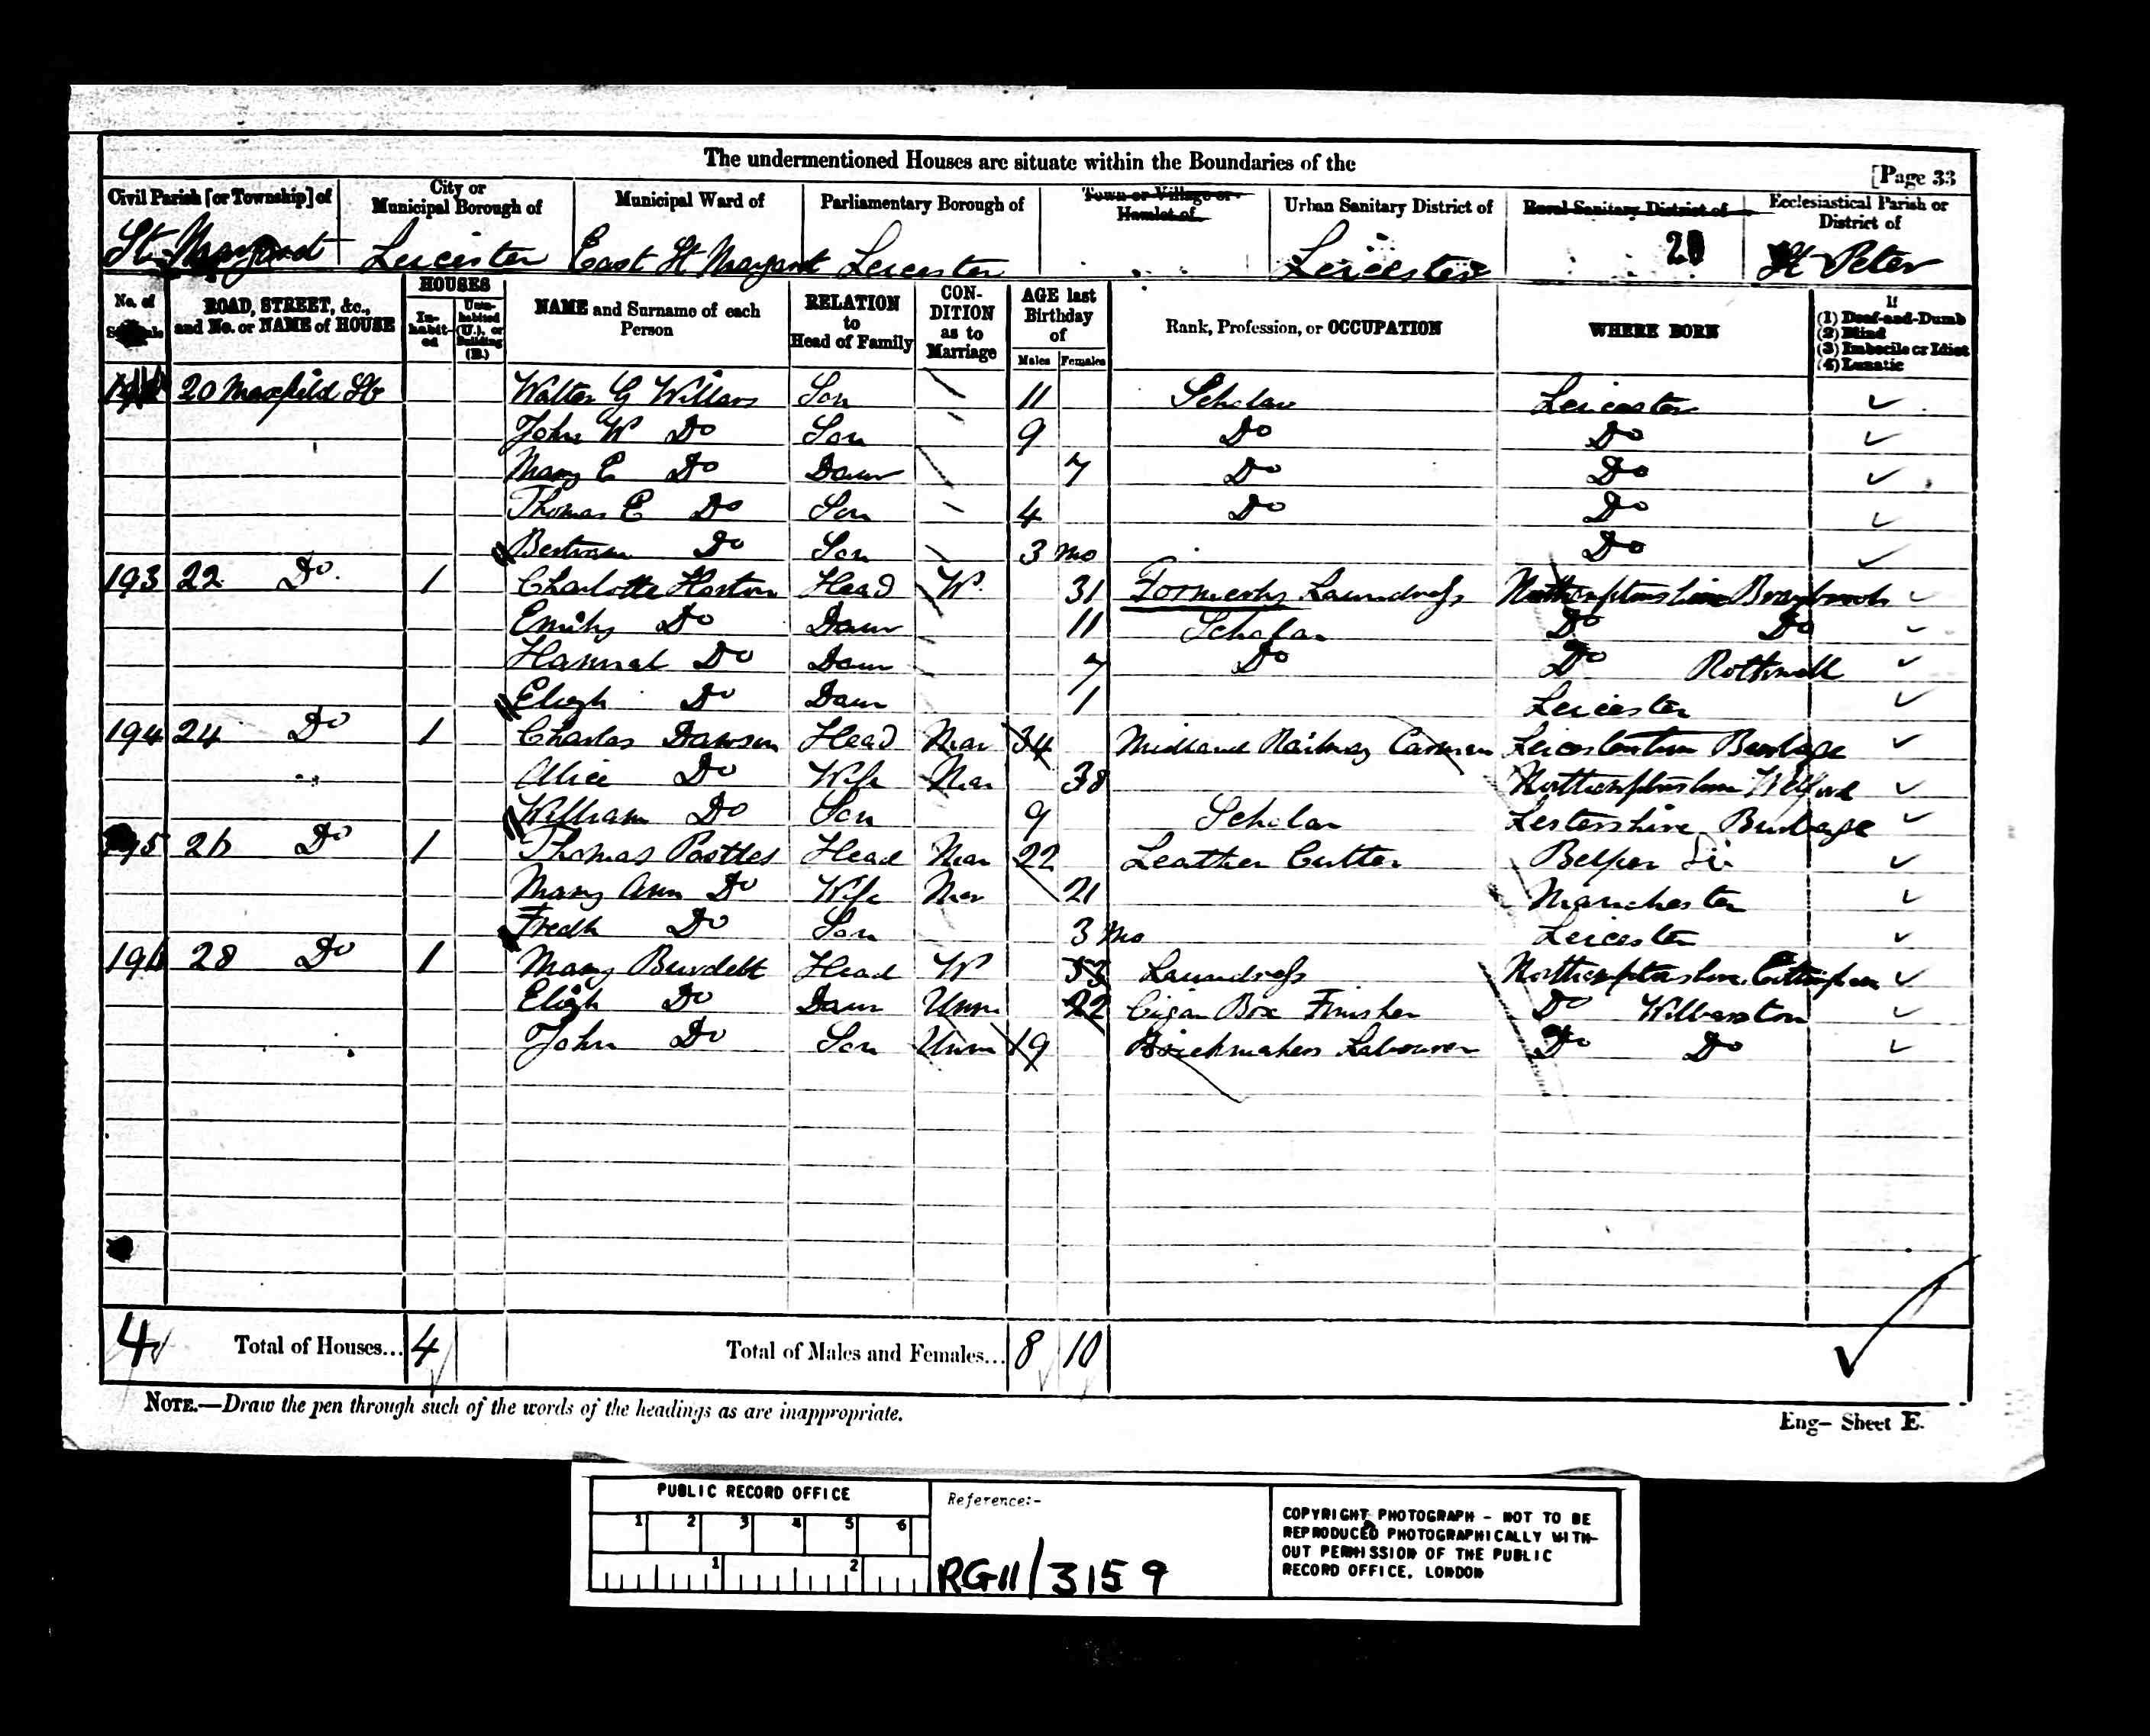 The undermentioned Houses are situate within the Boundaries of the
[Page 33
Civil Parish [or Township] of
City or Municipal Borough of
Municipal Ward of
Parliamentary Borough of
Town or Village or Hamlet of
Urban Sanitary District of
Rural Sanitary District of
Ecclesiastical Parish or District of
St Margaret Leicester East St Margaret Leicester Leicester 20 St Peter
No. of Schedule
ROAD, STREET, &c., and No. or NAME of HOUSE
HOUSES
Inhabited
Uninhabited (U.), or Building (B.)
NAME and Surname of each Person
RELATION to Head of Family
CONDITION as to Marriage
AGE last Birthday of
Males Females
Rank, Profession, or OCCUPATION
WHERE BORN
If
(1) Deaf-and-Dumb
(2) Blind
(3) Imbecile or Idiot
(4) Lunatic
20 Maxfield St Walter G Willars Son 11 Scholar Leicester
John W Do Son 9 Do Do
Mary E Do Daur 7 Do Do
Thomas E Do Son 4 Do Do
Bertram Do Son 3 mo Do
193 22 Do 1 Charlotte Horton Head W 31 Formerly Laundress Northamptonshire Braybrook
Emily Do Daur 11 Scholar Do Do
Hannah Do Daur 7 Do Do Rothwell
Elizh Do Daur 1 Leicester
194 24 Do 1 Charles Dawson Head Mar 34 Midland Railway Carman Leicestershire Burbage
Alice Do Wife Mar 38 Northamptonshire Welford
William Do Son 9 Scholar Lestershire Burbage
195 26 Do 1 Thomas Pottles Head Mar 22 Leather Cutter Belper
Mary Ann Do Wife Mar 21 Manchester
Fredk Do Son 3 mo Leicester
196 28 Do 1 Mary Burdett Head W 53 Laundress Northamptonshire Cottingham
Elizh Do Daur Unm 22 Cigar Box Finisher Do Wilbarston
John Do Son Unm 19 Brickmakers Labourer Do Do
4 Total of Houses... 4 Total of Males and Females... 8 10
NOTE.—Draw the pen through such of the words of the headings as are inappropriate.
Eng- Sheet E.
PUBLIC RECORD OFFICE
1 2 3 4 5 6
1 2
Reference:-
RG11/3159
COPYRIGHT PHOTOGRAPH - NOT TO BE
REPRODUCED PHOTOGRAPHICALLY WITH-
OUT PERMISSION OF THE PUBLIC
RECORD OFFICE, LONDON